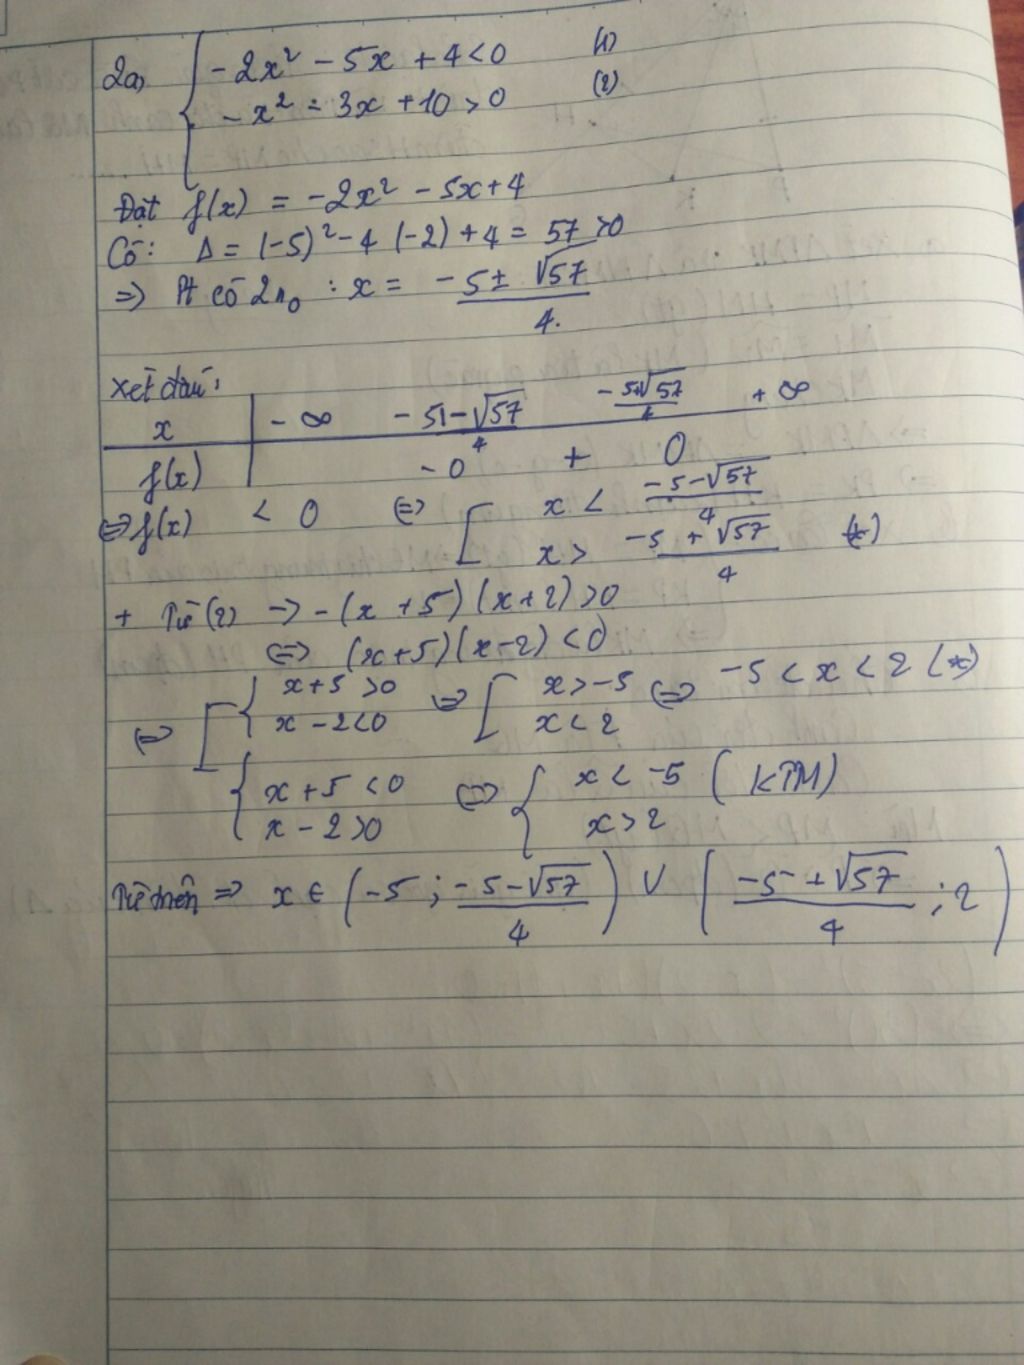 2a, { -2x² - 5x + 4 < 0 (1)
-x² = 3x + 10 > 0 (2)
Đặt f(x) = -2x² - 5x + 4
Có: Δ = (-5)² - 4 (-2) + 4 = 57 > 0
=> Pt có 2 n₀ : x = (-5 ± √57)/4.
Xét dấu:
x | -∞ (-5 - √57)/4 (-5+√57)/4 +∞
f(x) | - 0 + 0
<=> f(x) < 0 <=> [ x < (-5 - √57)/4
x > (-5 + √57)/4 (*)
+ Từ (2) -> -(x + 5) (x + 2) > 0
<=> (x + 5) (x - 2) < 0
<=> [ { x + 5 > 0 <=> [ x > -5 <=> -5 < x < 2 (*)
x - 2 < 0 x < 2
{ x + 5 < 0 <=> { x < -5 (KTM)
x - 2 > 0 x > 2
Từ trên => x ∈ (-5 ; (-5 - √57)/4) ∪ ((-5 + √57)/4 ; 2)